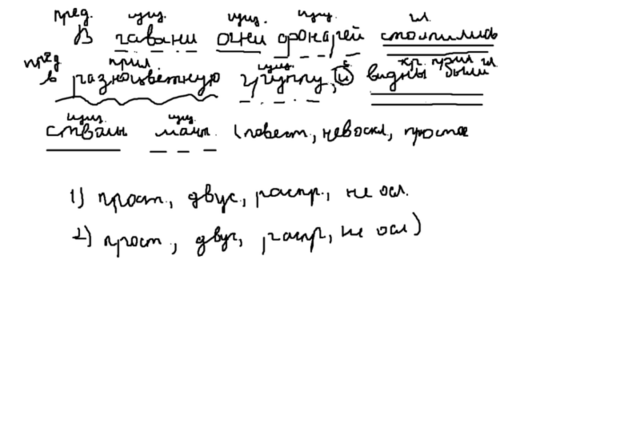 пред. сущ. сущ. сущ. гл.
В гавани огни фонарей столпились
пред прил. сущ. с кр. прил гл
в разноцветную группу, и видны были
сущ. сущ.
стволы мачт. (повест, невоскл, простое
1) прост, двус, распр, не осл.
2) прост, двус, распр, не осл)